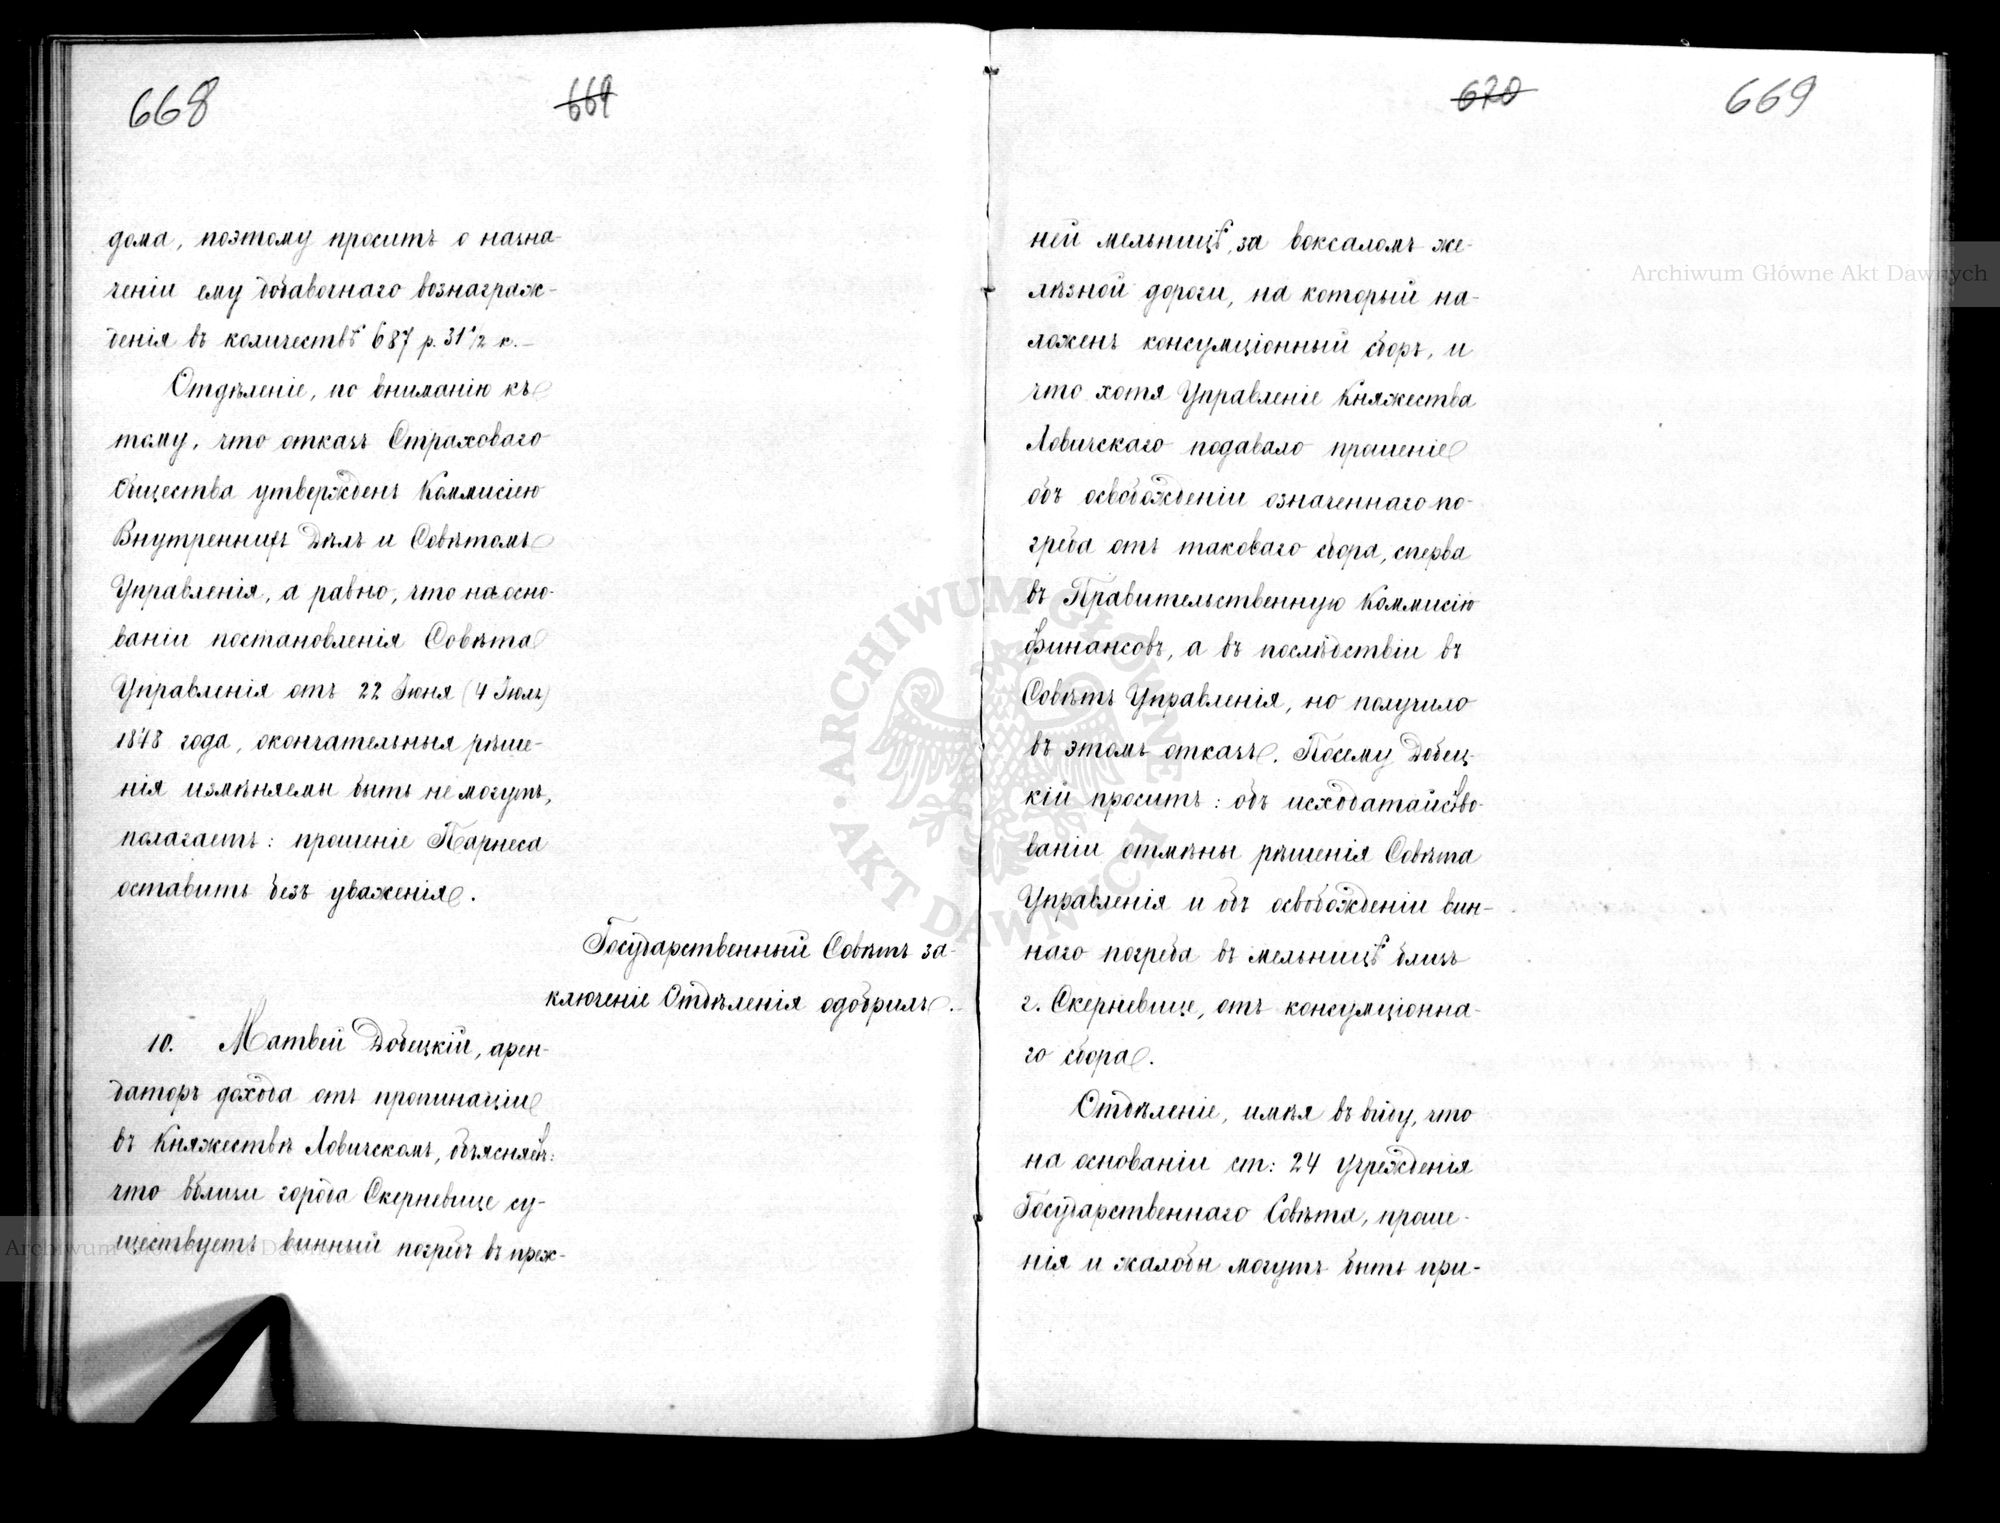 668
669
дома, поэтому проситъ о назна-
ченіи ему добавочнаго вознаграж-
денія въ количествѣ 687 р. 31 1/2 к.
Отдѣленіе, по вниманію къ
тому, что отказъ Страховаго
Общества утвержденъ Коммисіею
Внутреннихъ Дѣлъ и Совѣтомъ
Управленія, а равно, что на осно-
ваніи постановленія Совѣта
Управленія отъ 22 Іюня (4 Іюля)
1848 года, окончательныя рѣше-
нія измѣняемы быть не могутъ,
полагаетъ: прошеніе Парнеса
оставить безъ уваженія.
Государственный Совѣтъ за-
ключеніе Отдѣленія одобрилъ.
10. Матвѣй Добецкій, арен-
даторъ дохода отъ пропинаціи
въ Княжествѣ Ловичскомъ, объясняетъ:
что вблизи города Скерневице су-
ществуетъ винный погребъ въ преж-
670
669
ней мельницѣ, за воксаломъ же-
лѣзной дороги, на который на-
ложенъ консумціонный сборъ, и
что хотя Управленіе Княжества
Ловичскаго подавало прошеніе
объ освобожденіи означеннаго по-
греба отъ таковаго сбора, сперва
въ Правительственную Коммисію
Финансовъ, а въ послѣдствіи въ
Совѣтъ Управленія, но получило
въ этомъ отказъ. Посему Добец-
кій проситъ: объ исходатайство-
ваніи отмѣны рѣшенія Совѣта
Управленія и объ освобожденіи вин-
наго погреба въ мельницѣ близъ
г. Скерневице, отъ консумціонна-
го сбора.
Отдѣленіе, имѣя въ виду, что
на основаніи ст: 24 учрежденія
Государственнаго Совѣта, проше-
нія и жалобы могутъ быть при-
Archiwum Główne Akt Dawnych
Archiwum Główne Akt Dawnych
ARCHIWUM GŁÓWNE AKT DAWNYCH